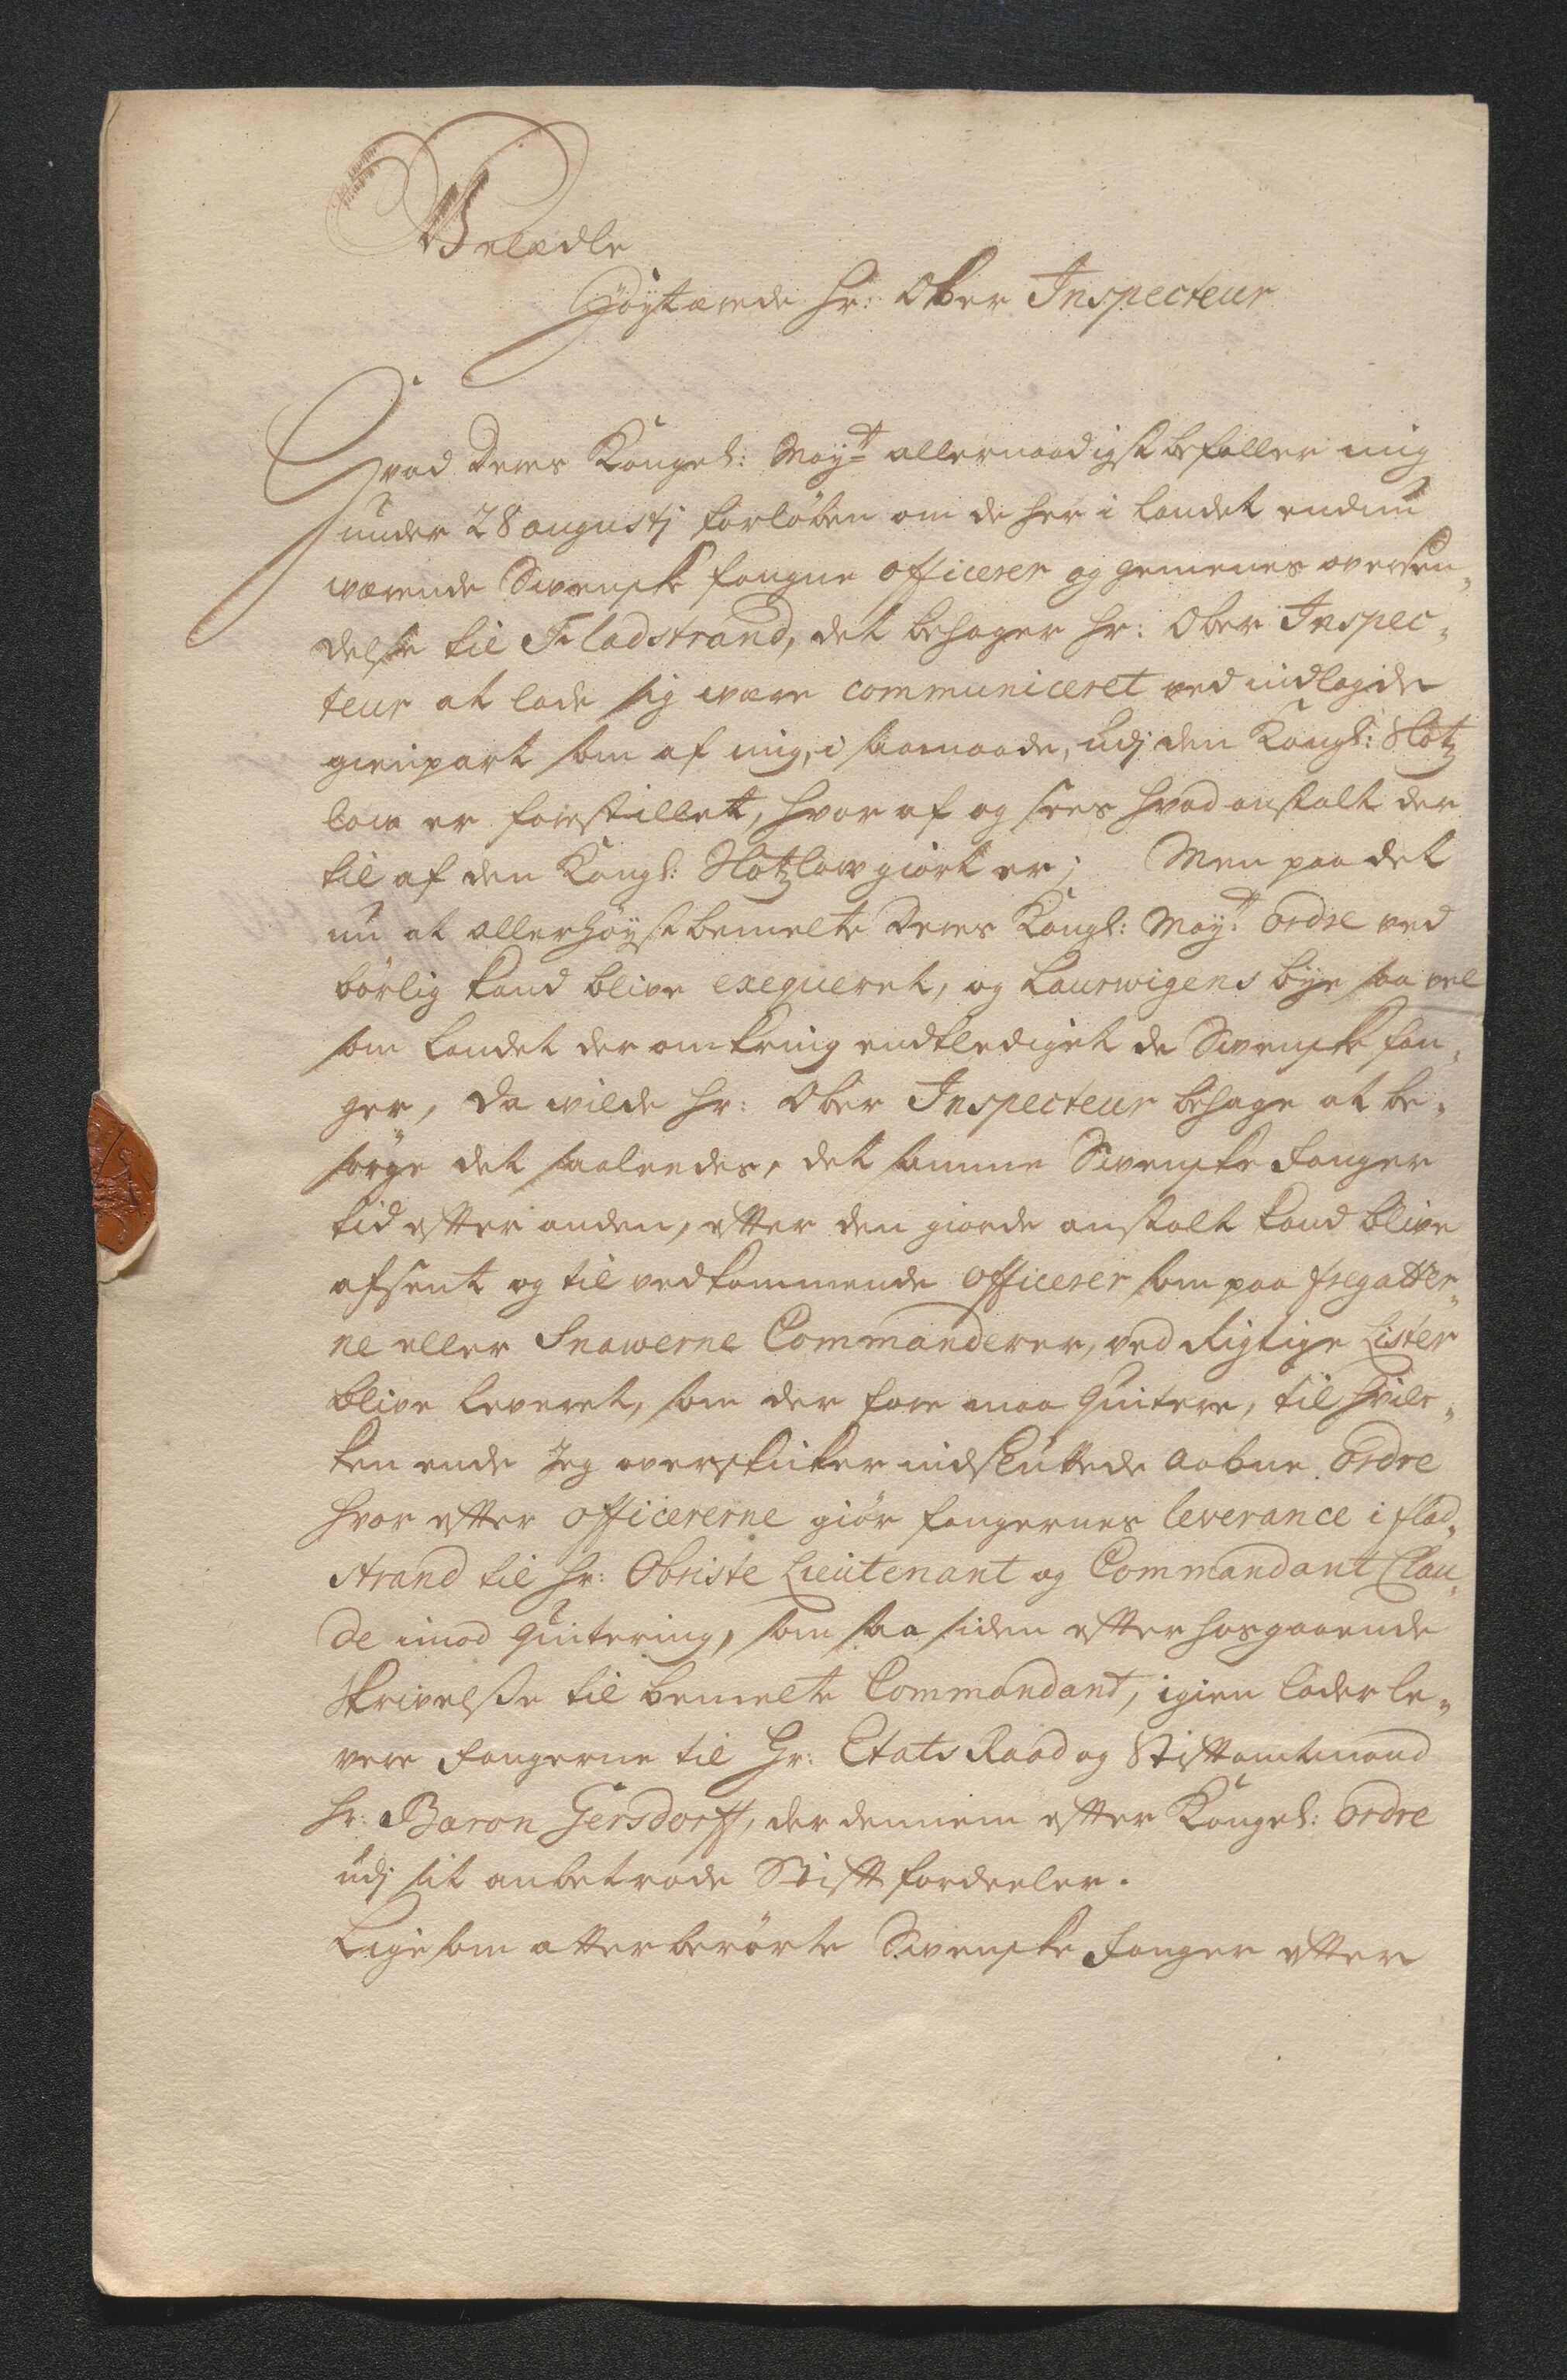 Velædle
Høytærede Hr: Ober Inspecteur
Hvad Deres Kongel: Mayt allernaadigst befaller mig
under 28 augustj forløben om de her i landet endnu
værende Svenske fangne officerer og gemenes oversen-
delse til Fladstrand, det behager Hr: Ober Inspec-
teur at lade sig være communiceret ved indlagde
gienpart som af mig, i saamaade, udj den Kongl: Slotz
low er forestillet, hvor af og sees hvad anstalt der
til af den Kongl: Slotzlow giort er; Men paa det
nu at allerhøystbemelte Deres Kongl: Mayt: ordre ved
børlig kand blive exequeret, og Laurwigens bye saa vel
som landet der omkring endtlediget de Svenske fan-
ger, da wilde Hr: Ober Inspecteur behage at be-
sørge det saaledes, det samme Svenske Fanger
tid efter anden, efter den giorde anstalt kand blive
afsent og til vedkommende officerer som paa fregatter-
ne eller Snawerne Commanderer, ved Rigtige Lister
blive leveret, som der fore maa quitere, til hvilc-
ken ende Jeg overskicker indsluttede aabne ordre
hvor efter officererne giør fangernes leverance i flad-
strand til Hr: Obriste Lieutenant og Commandant Clau-
de imod quitering, som saa siden efter hosgaaende
skrivelse til bemelte Commandant, igien lader le-
vere fangerne til Hr: Etats Raad og Stiftamtmand
Hr: Baron Gersdorff, der dennem efter Kongel: ordre
udj sit anbetroede Stift fordeeler.
Ligesom atterberørte Svenske Fanger efter